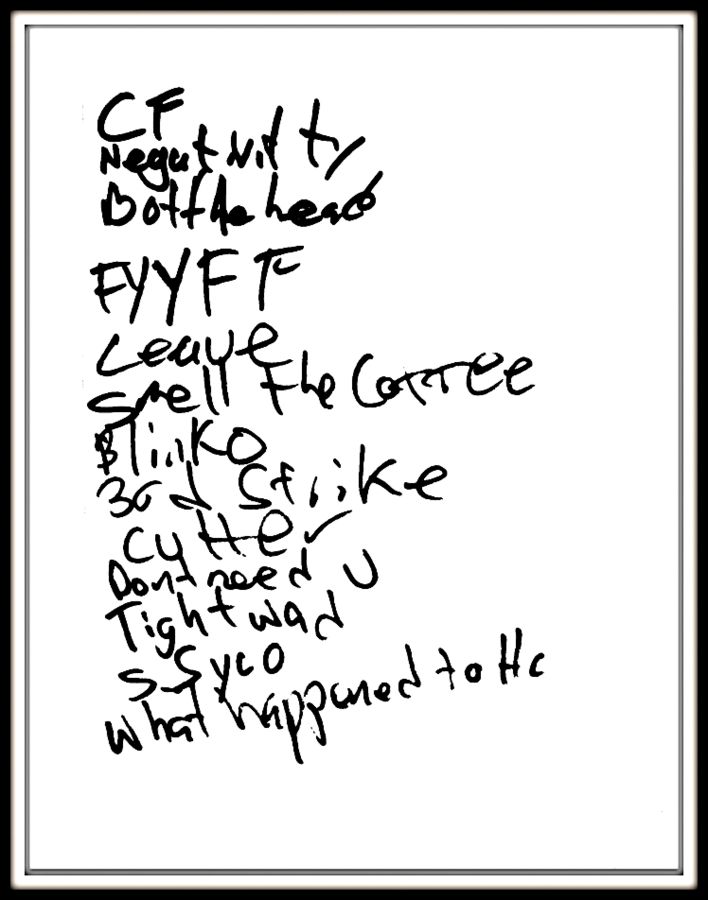 CF
Negativity
Bottlehead
FYYFF
Leave
Smell the Coffee
Blinko
3rd Strike
Cutter
Dont need U
Tightwad
S Syco
What happened to Hc